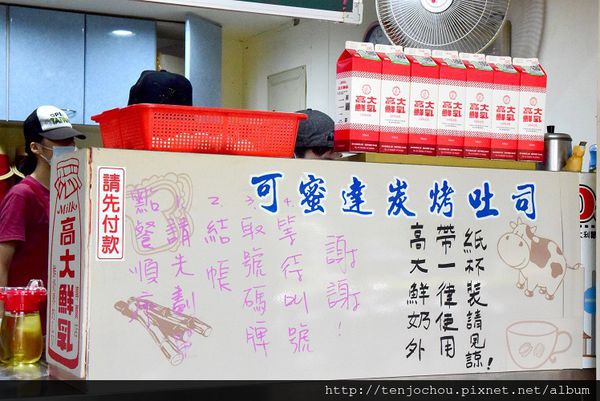 可蜜達炭烤吐司
請先付款
點餐順序
1.請先劃單
2.結帳
3.取號碼牌
4.等待叫號
謝謝!
高大鮮奶外
帶一律使用
紙杯裝請見諒!
Milk
高大鮮乳
高大鮮乳
高大鮮乳
高大鮮乳
高大鮮乳
高大鮮乳
高大鮮乳
高大鮮乳
http://tenjochou.pixnet.net/album